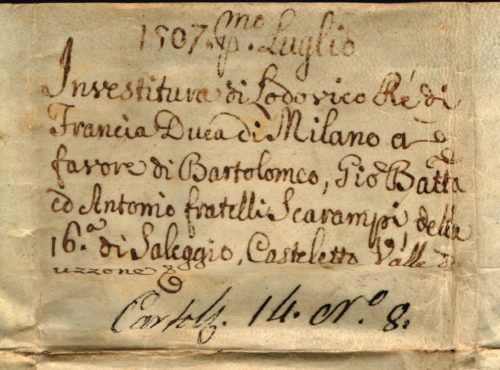 1507. p.mo Luglio
Investitura di Lodovico Ré di
Francia Duca di Milano a
favore di Bartolomeo, Gio Batta
ed Antonio fratelli Scarampi della
16.a di Saleggio, Casteletto Valle d
uzzone &
Cartol. 14. No. 8.